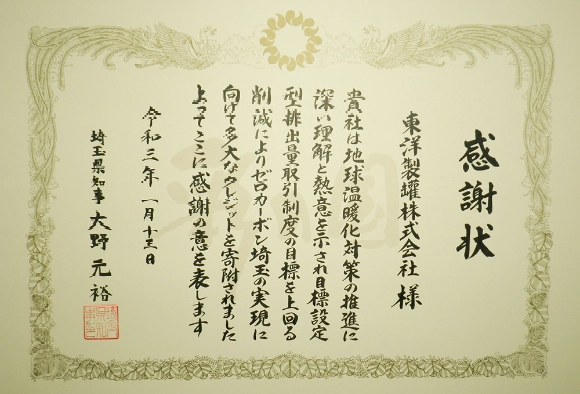 感謝状
東洋製罐株式会社 様
貴社は地球温暖化対策の推進に
深い理解と熱意を示され目標設定
型排出量取引制度の目標を上回る
削減によりゼロカーボン埼玉の実現に
向けて多大なクレジットを寄附されました
よってここに感謝の意を表します
令和三年一月十三日
埼玉県知事 大野元裕